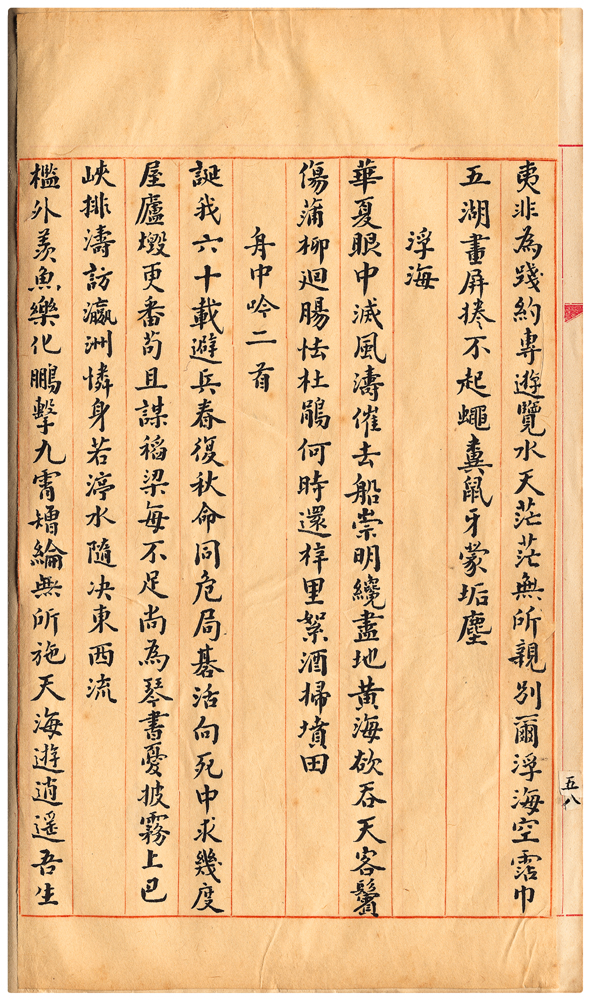 夷非為踐約專遊覽水天茫茫無所親別爾浮海空霑巾
五湖畫屏捲不起蠅糞鼠牙蒙垢塵
浮海
華夏眼中滅風濤催去船崇明纔盡地黃海欲吞天客鬢
傷蒲柳迴腸怯杜鵑何時還梓里絮酒掃墳田
舟中吟二首
誕我六十載避兵春復秋命同危局碁活向死中求幾度
屋廬燬更番苟且謀稻梁每不足尚為琴書憂披霧上巴
峽排濤訪瀛洲憐身若渟水隨決東西流
檻外羨魚樂化鵬擊九霄矰綸無所施天海遊逍遙吾生
五八